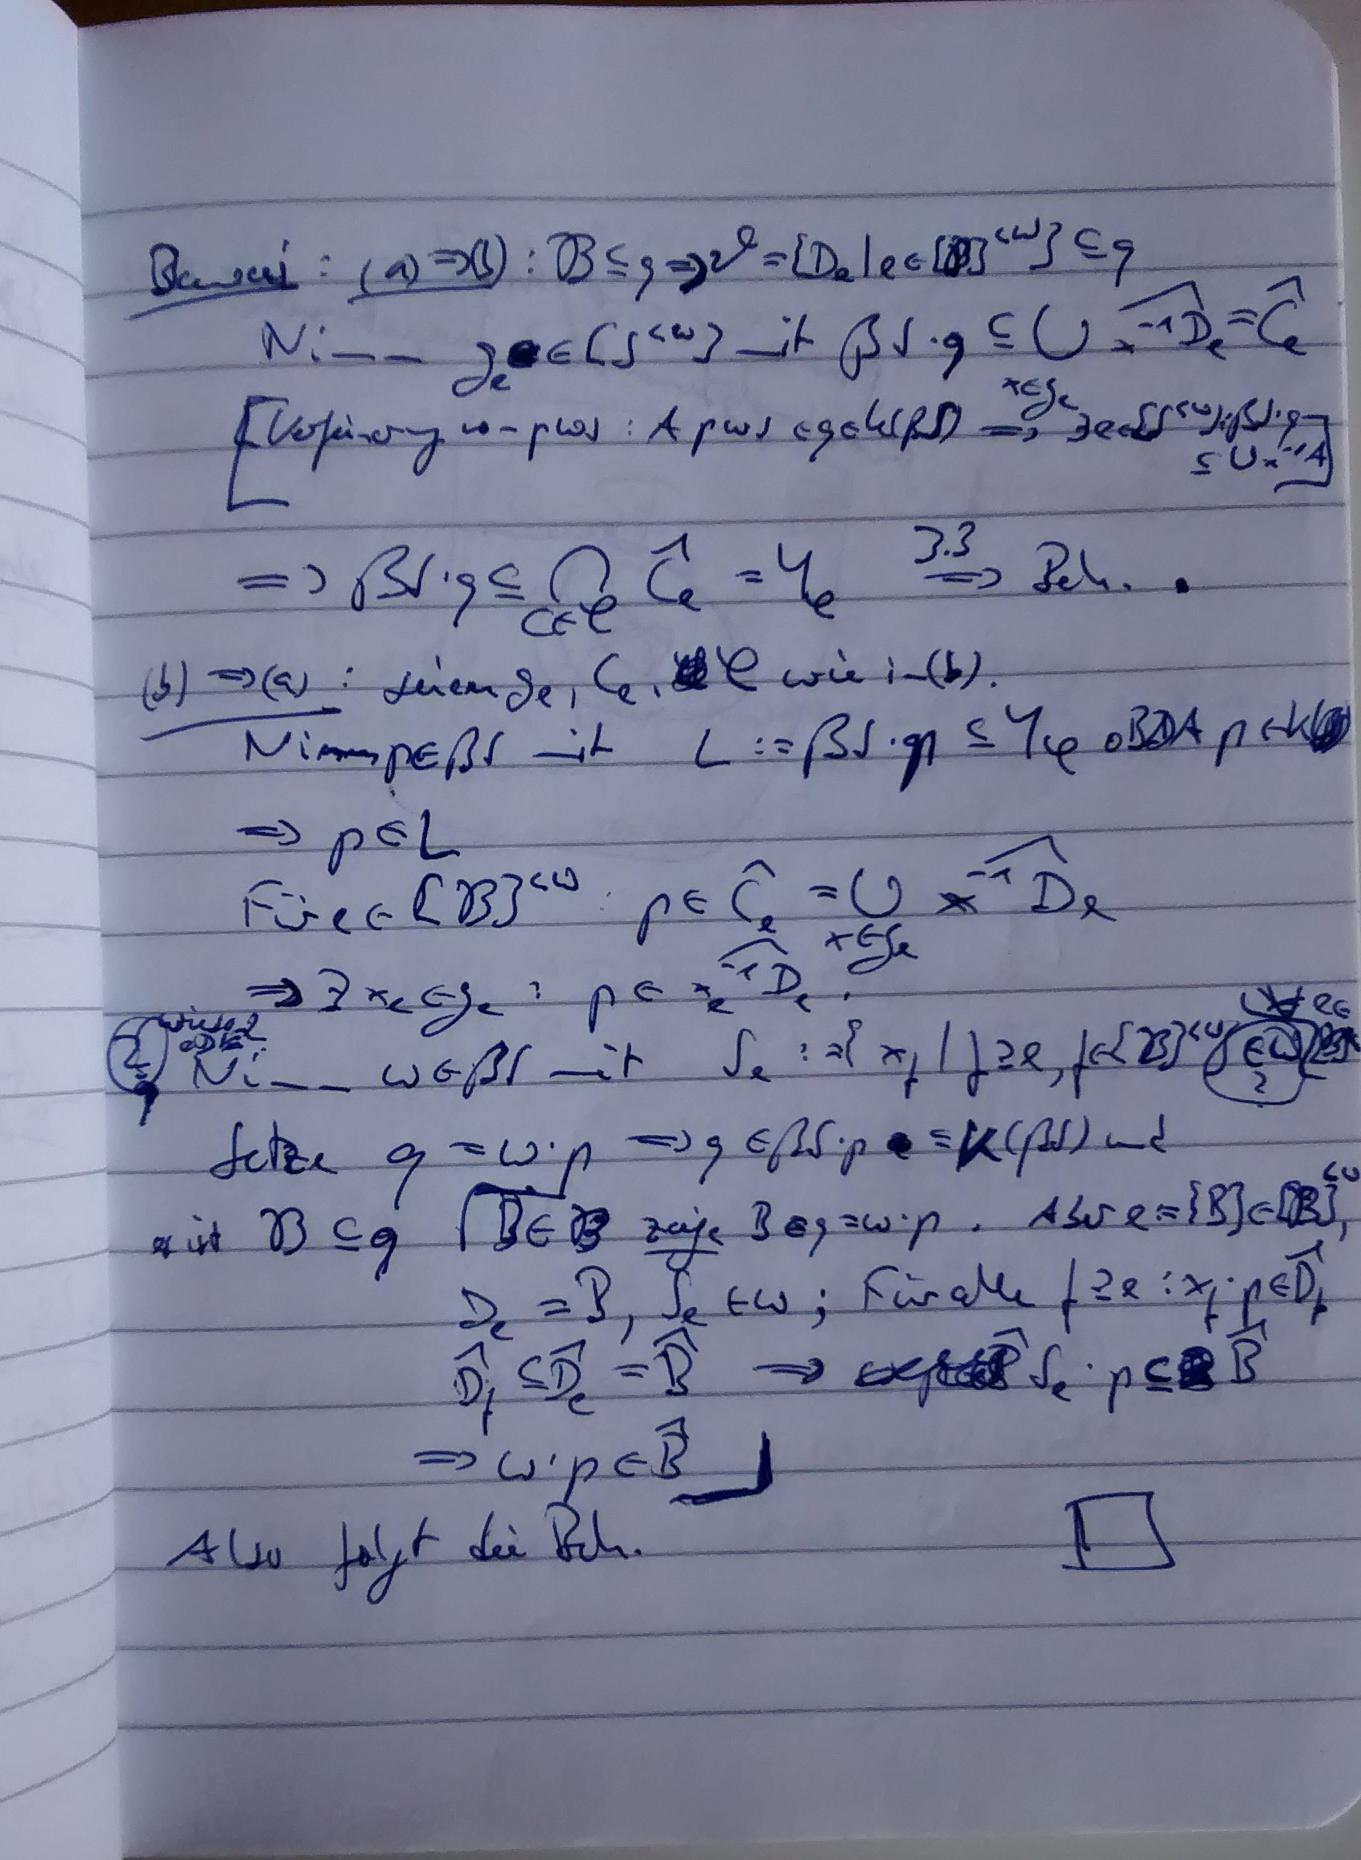 Beweis: (a) ⇒ (b): 𝓑 ⊆ q ⇒ 𝒱 = {D_e | e ∈ [𝓑]^{<ω}} ⊆ q
Nimm g_e ∈ [S^{<ω}] mit βS·q ⊆ ⋃_{x∈g_e} x^{-1}D_e^ = Ĉ_e
[ von pws: A pws ∈ q ∈ K(βS) ⇒ ∃e∈[S^{<ω}]: βS·q ⊆ ⋃ x^{-1}A ]
⇒ βS·q ⊆ ⋂_{C∈𝒞} Ĉ_e = Y_𝒞 ⇒^{3.3} Beh.
(b) ⇒ (a): seien g_e, C_e, 𝒞 wie in (b).
Nimm p ∈ βS mit L := βS·p ⊆ Y_𝒞 oBDA p ∈ K
⇒ p ∈ L
Für e ∈ [𝓑]^{<ω}: p ∈ Ĉ_e = ⋃_{x∈g_e} x^{-1}D_e^
⇒ ∃ x_e ∈ g_e: p ∈ x_e^{-1}D_e^.
? Nimm w ∈ βS mit S_e := {x_f | f ⊇ e, f ∈ [𝓑]^{<ω}} ∈ w ∀ e ∈
?
Setze q = w·p ⇒ q ∈ βS·p ⊆ K(βS) und
es ist 𝓑 ⊆ q ⌈ B ∈ 𝓑 zeige B ∈ q = w·p. Also e = {B} ∈ [𝓑]^{<ω},
D_e = B, S_e ∈ w; Für alle f ⊇ e: x_f·p ∈ D̂_f
D̂_f ⊆ D̂_e = B̂ ⇒ S_e·p ⊆ B̂
⇒ w·p ∈ B̂ ⌋
Also folgt die Beh. □